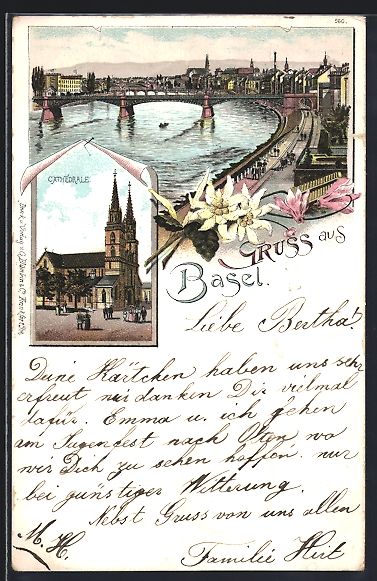 560.
CATHÉDRALE.
GRUSS aus
Basel.
Liebe Bertha!
Deine Kärtchen haben uns sehr
erfreut wir danken Dir vielmal
dafür. Emma u. ich gehen
am Jugendfest nach Olten wo
wir Dich zu sehen hoffen. nur
bei günstiger Witterung.
Nebst Gruss von uns allen
M. H.
Familie Hirt
Druck u. Verlag v.